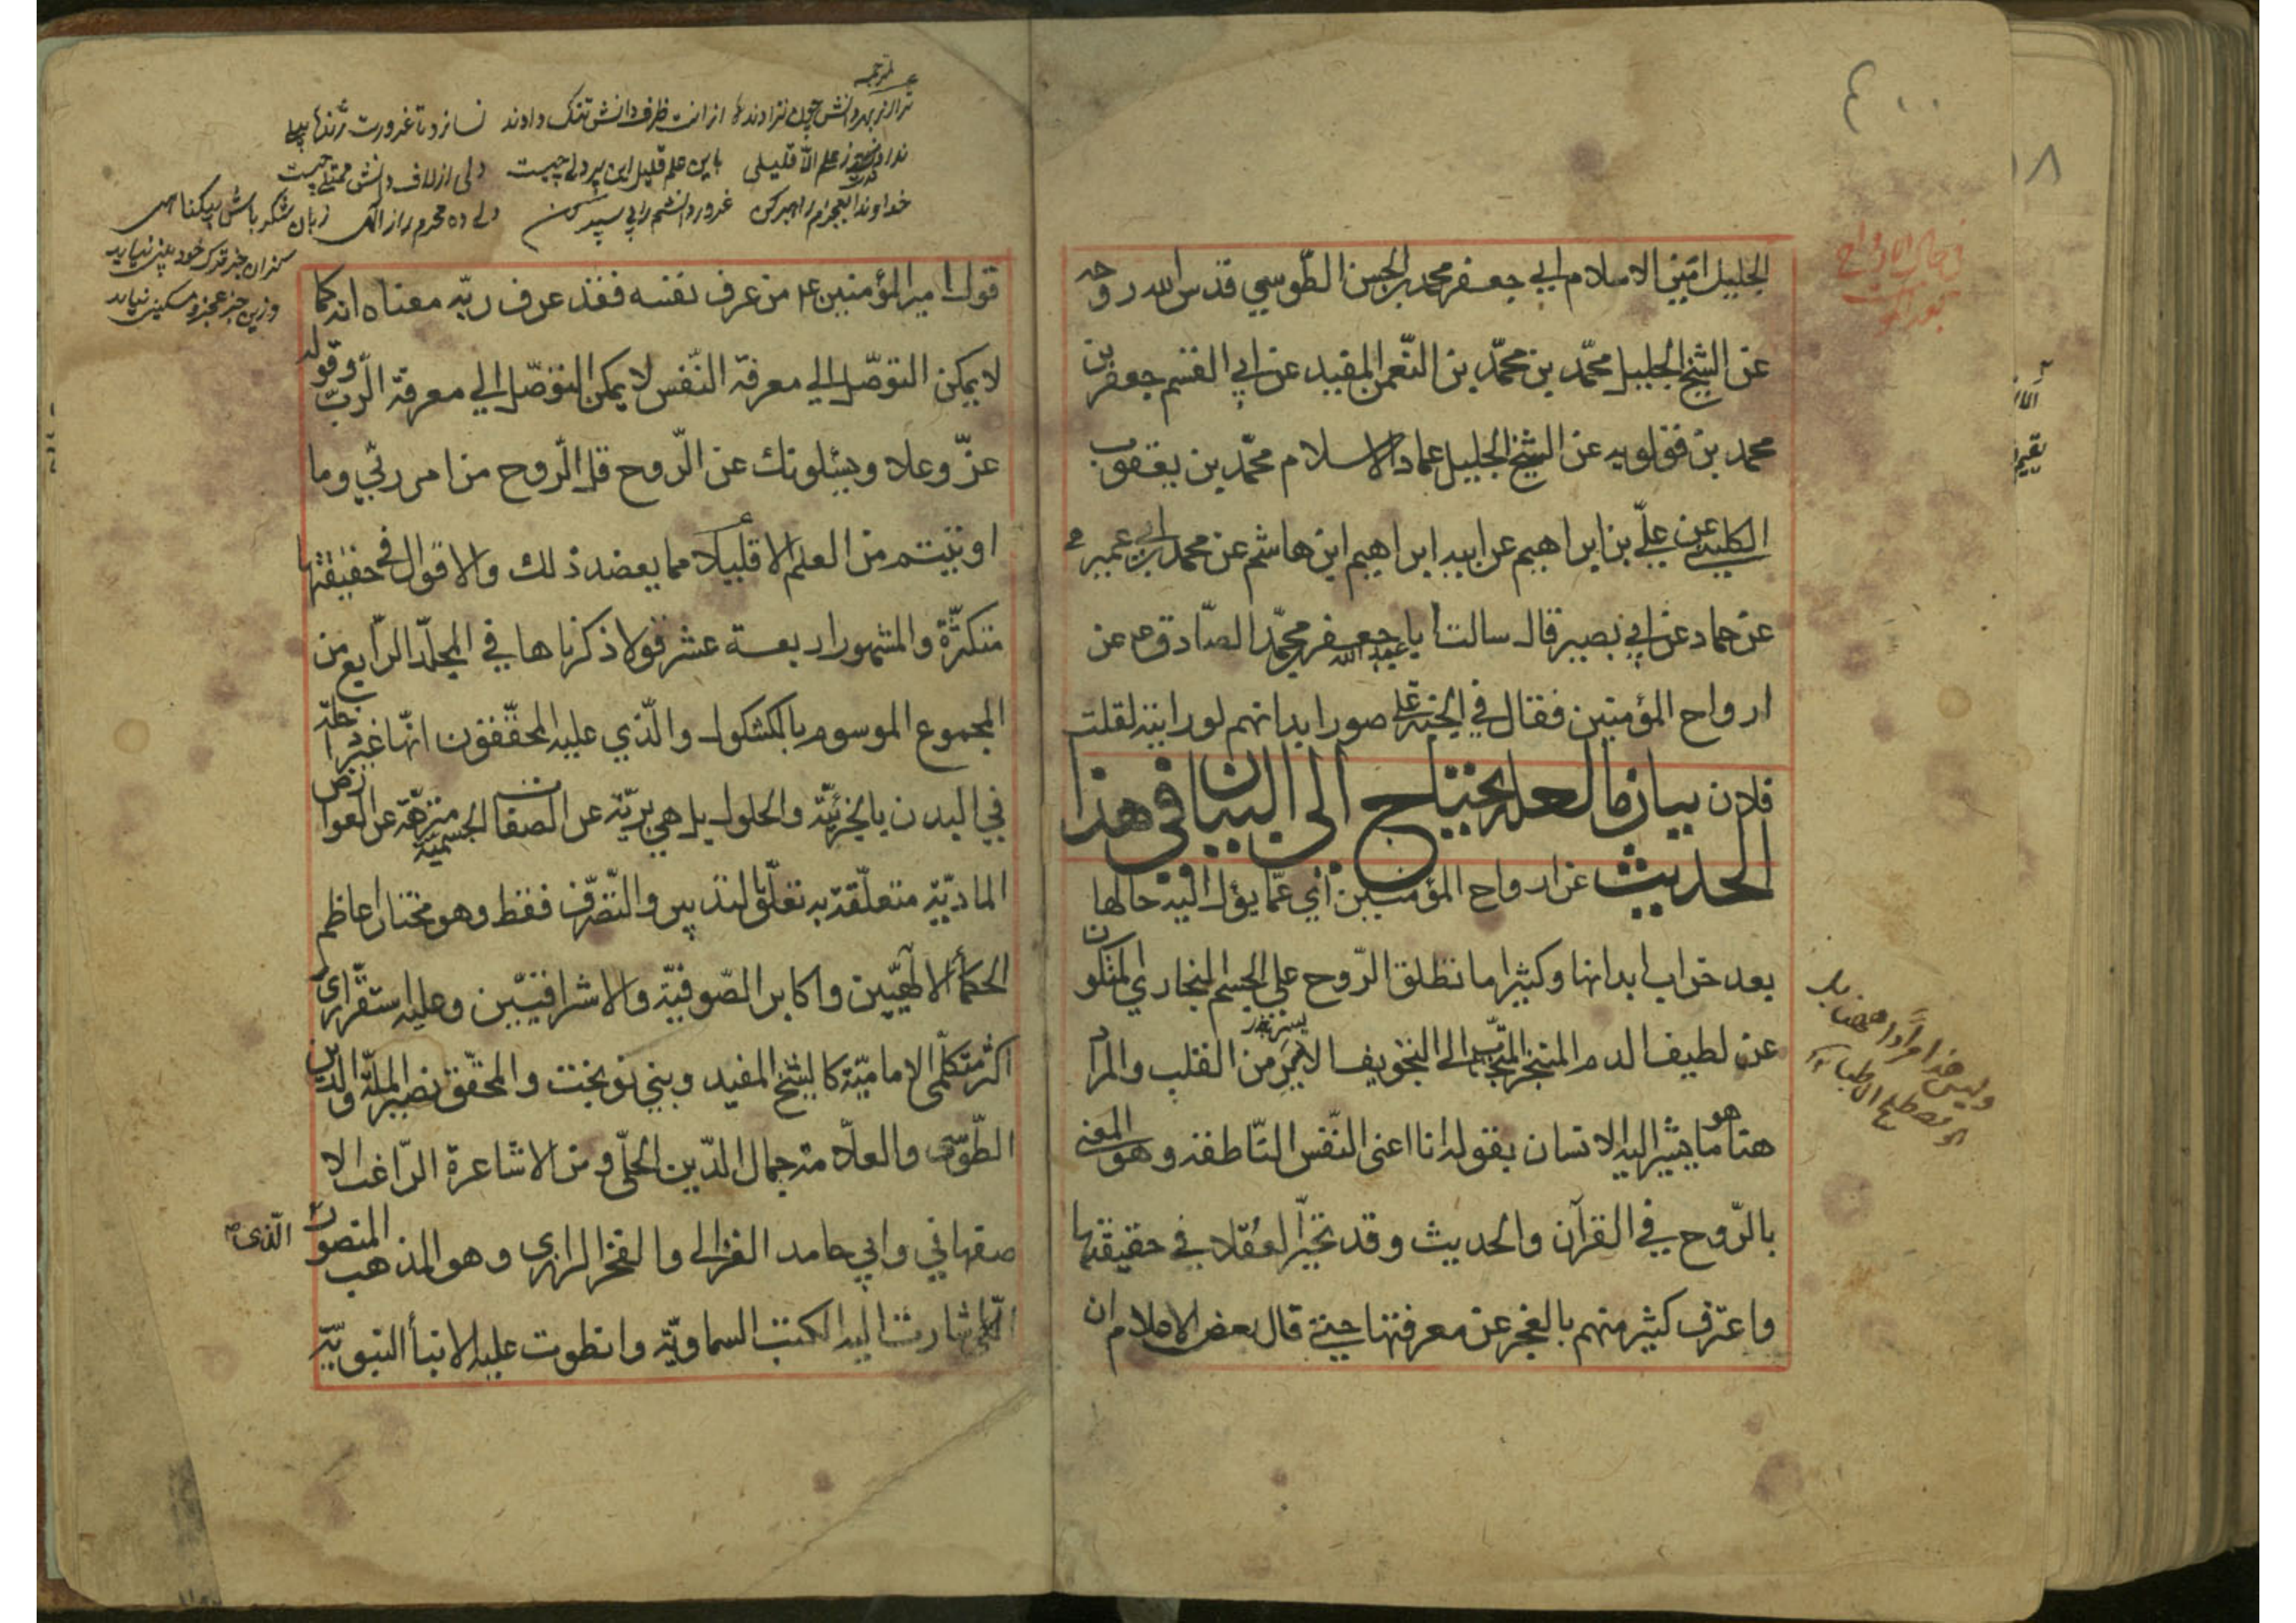 ٤٠٠
في حال الارواح
الجليل امين الاسلام ابي جعفر محمد بن الحسن الطّوسي قدس الله روحه
عن الشيخ الجليل محمّد بن محمّد بن النّعمن المفيد عن ابي القسم جعفر بن
محمد بن قولويه عن الشيخ الجليل عماد الاسلام محمّد بن يعقوب
الكليني عن عليّ بن ابراهيم عن ابيه ابراهيم ابن هاشم عن محمد بن ابي عمير
عن حماد عن ابي بصير قال سالت ابا عبد الله جعفر بن محمّد الصّادق ع عن
ارواح المؤمنين فقال في الجنة على صور ابدانهم لو رايته لقلت
فلان بيان ما لعله يحتاج الى البيان في هذا
الحديث عن ارواح المؤمنين اي عمّا يؤل اليه حالها
بعد خراب ابدانها وكثيرا ما تطلق الرّوح على الجسم البخاري المتكون
عن لطيف الدم المتبخر المنجذب الى التجويف الايسر من القلب والمراد
هنا هو ما يشير اليه الانسان بقوله انا اعنى النّفس النّاطقه وهو المعنى
بالرّوح في القرآن والحديث وقد تحيّر العقلا في حقيقتها
واعترف كثير منهم بالعجز عن معرفتها حتى قال بعض الاعلام ان
وليس هذا مرادا ههنا بل
هو مصطلح الاطباء
لمترجمه
خداوندا
قول امير المؤمنين ع من عرف نفسه فقد عرف ربّه معناه انه كما
لا يمكن التوصّل الي معرفة النّفس لا يمكن التوصّل الي معرفة الرّبّ وقوله
عزّ وعلا ويسئلونك عن الرّوح قل الرّوح من امر ربّي وما
اوتيتم من العلم الا قليلا مما يعضد ذلك والاقوال في حقيقتها
متكثّرة والمشهور اربعة عشر قولا ذكرناها في المجلّد الرّابع من
المجموع الموسوم بالكشكول والّذي عليه المحقّقون انّها غير داخلة
في البدن بالجزئيّة والحلول بل هي بريّة عن الصفات الجسميّة منزّهة عن العوارض
الماديّة متعلّقة به تعلّق التدبير والتّصّرف فقط وهو مختار اعاظم
الحكمأ الالهيّين واكابر الصّوفيّة والاشراقيّين وعليه استقّر راى
اكثر متكلّمى الاماميّة كالشيخ المفيد وبني نوبخت والمحقّق نصير الملّة والدّين
الطّوسى والعلّامة جمال الدّين الحلّي ومن الاشاعرة الرّاغب الا
صفهاني وابي حامد الغزالى والفخر الرازي وهو المذهب المنصور
الّذى
اشارت اليه الكتب السماويّة وانطوت عليه الانبأ النبويّة